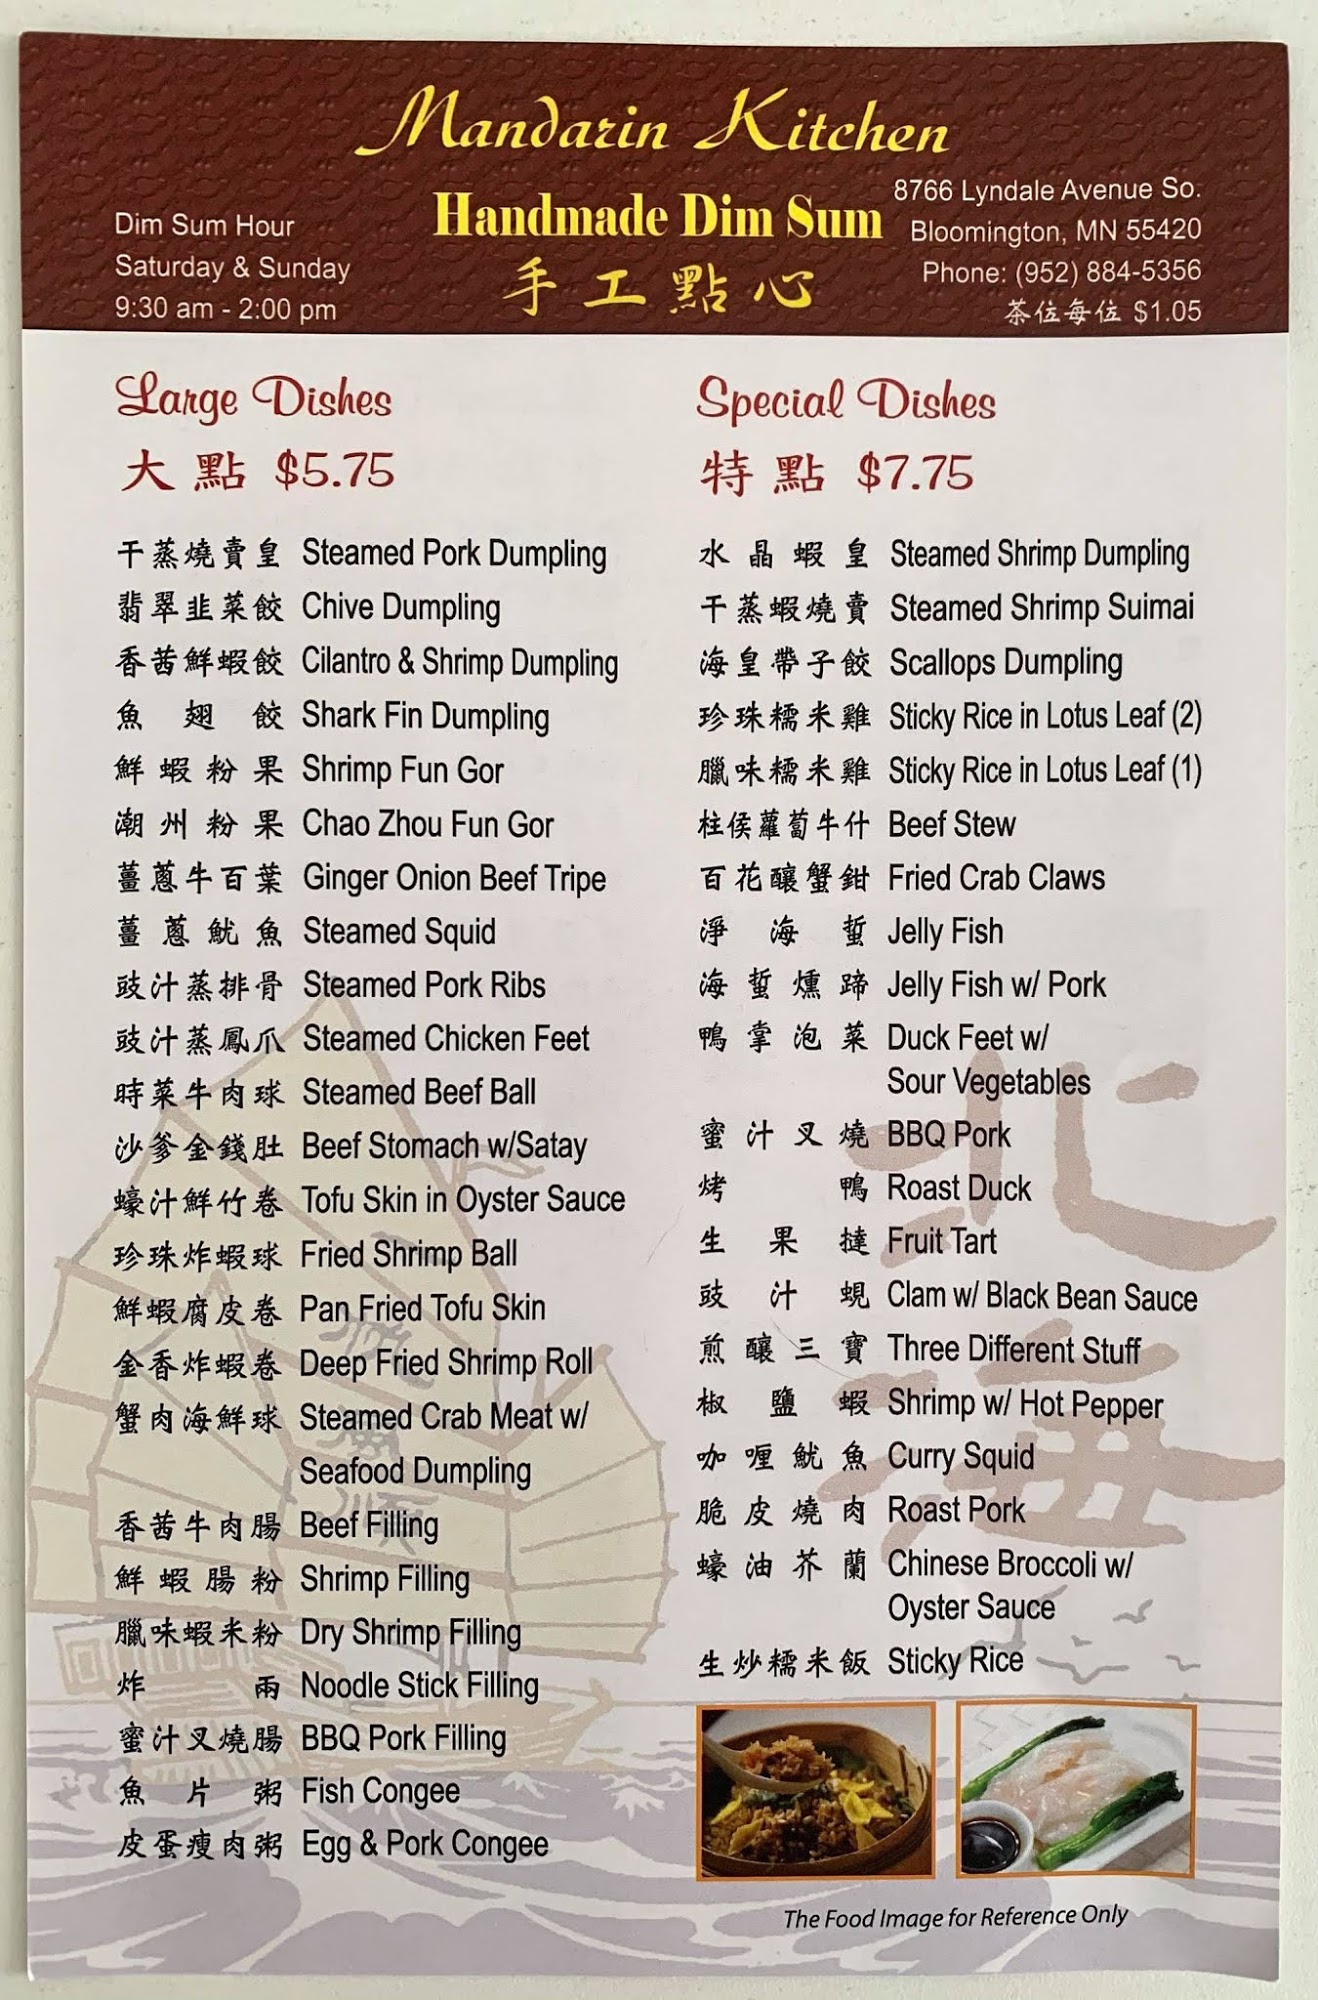 Mandarin Kitchen
Handmade Dim Sum
手工點心
Dim Sum Hour
Saturday & Sunday
9:30 am - 2:00 pm
8766 Lyndale Avenue So.
Bloomington, MN 55420
Phone: (952) 884-5356
茶位每位 $1.05
Large Dishes
大點 $5.75
干蒸燒賣皇 Steamed Pork Dumpling
翡翠韭菜餃 Chive Dumpling
香茜鮮蝦餃 Cilantro & Shrimp Dumpling
魚翅餃 Shark Fin Dumpling
鮮蝦粉果 Shrimp Fun Gor
潮州粉果 Chao Zhou Fun Gor
薑蔥牛百葉 Ginger Onion Beef Tripe
薑蔥魷魚 Steamed Squid
豉汁蒸排骨 Steamed Pork Ribs
豉汁蒸鳳爪 Steamed Chicken Feet
時菜牛肉球 Steamed Beef Ball
沙爹金錢肚 Beef Stomach w/Satay
蠔汁鮮竹卷 Tofu Skin in Oyster Sauce
珍珠炸蝦球 Fried Shrimp Ball
鮮蝦腐皮卷 Pan Fried Tofu Skin
金香炸蝦卷 Deep Fried Shrimp Roll
蟹肉海鮮球 Steamed Crab Meat w/
Seafood Dumpling
香茜牛肉腸 Beef Filling
鮮蝦腸粉 Shrimp Filling
臘味蝦米粉 Dry Shrimp Filling
炸兩 Noodle Stick Filling
蜜汁叉燒腸 BBQ Pork Filling
魚片粥 Fish Congee
皮蛋瘦肉粥 Egg & Pork Congee
Special Dishes
特點 $7.75
水晶蝦皇 Steamed Shrimp Dumpling
干蒸蝦燒賣 Steamed Shrimp Suimai
海皇帶子餃 Scallops Dumpling
珍珠糯米雞 Sticky Rice in Lotus Leaf (2)
臘味糯米雞 Sticky Rice in Lotus Leaf (1)
柱侯蘿蔔牛什 Beef Stew
百花釀蟹鉗 Fried Crab Claws
淨海蜇 Jelly Fish
海蜇燻蹄 Jelly Fish w/ Pork
鴨掌泡菜 Duck Feet w/
Sour Vegetables
蜜汁叉燒 BBQ Pork
烤鴨 Roast Duck
生果撻 Fruit Tart
豉汁蜆 Clam w/ Black Bean Sauce
煎釀三寶 Three Different Stuff
椒鹽蝦 Shrimp w/ Hot Pepper
咖喱魷魚 Curry Squid
脆皮燒肉 Roast Pork
蠔油芥蘭 Chinese Broccoli w/
Oyster Sauce
生炒糯米飯 Sticky Rice
北海
一帆風順
The Food Image for Reference Only